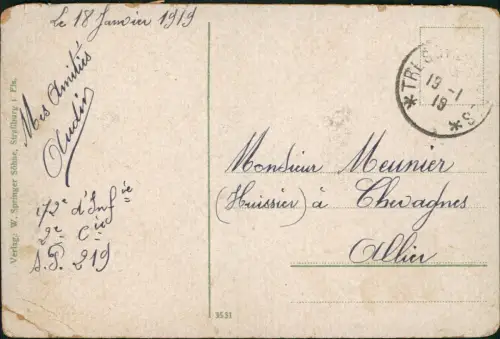 Le 18 Janvier 1919
Mes Amitiés
72e d'Infie
2e Cie
S.P. 219
Verlag: W. Springer Söhne, Straßburg i. Els.
*TRÉSOR
19 - 1
19
*S
Monsieur Meunier
(Huissier) à Chevagnes
Allier
3551